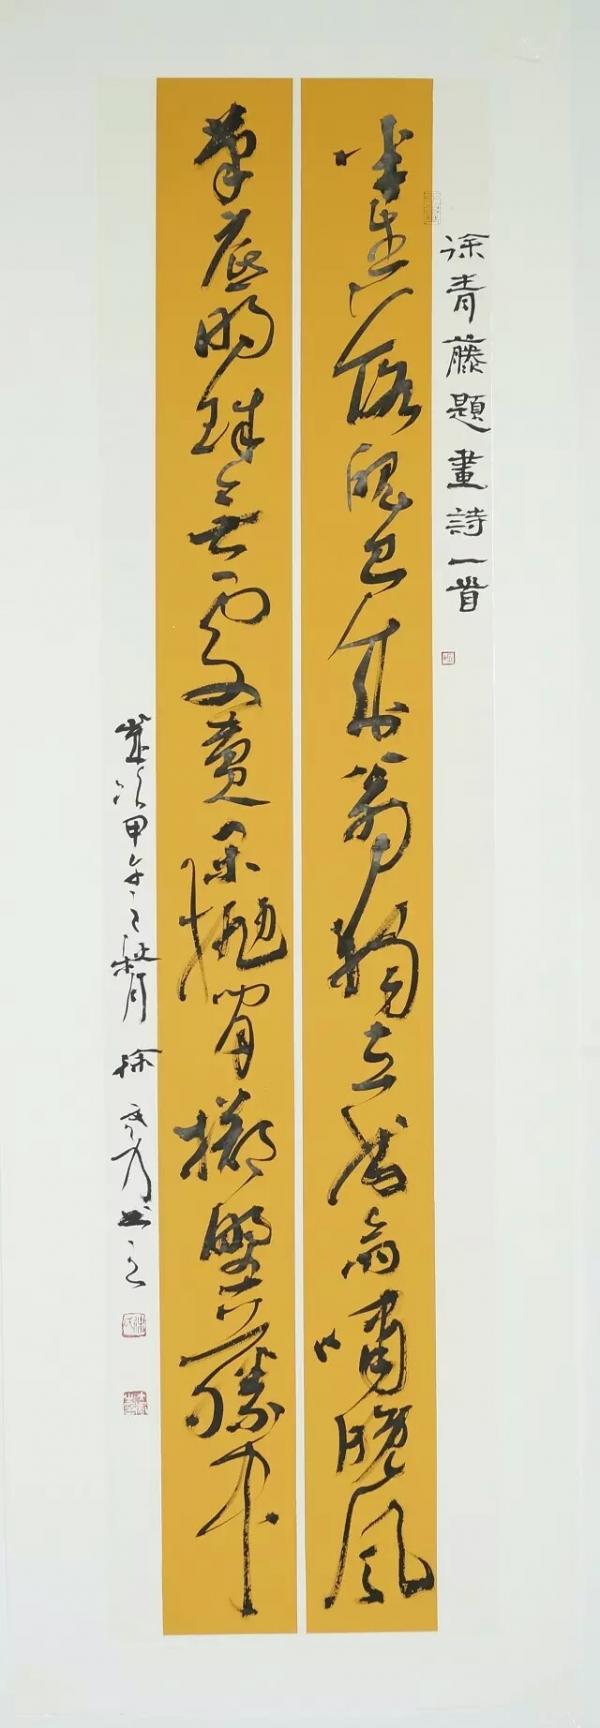 徐青藤題畫詩一首
半生落魄已成翁獨立書齋嘯晚風
筆底明珠無處賣閑拋閑擲野藤中
歲次甲午之月徐書之